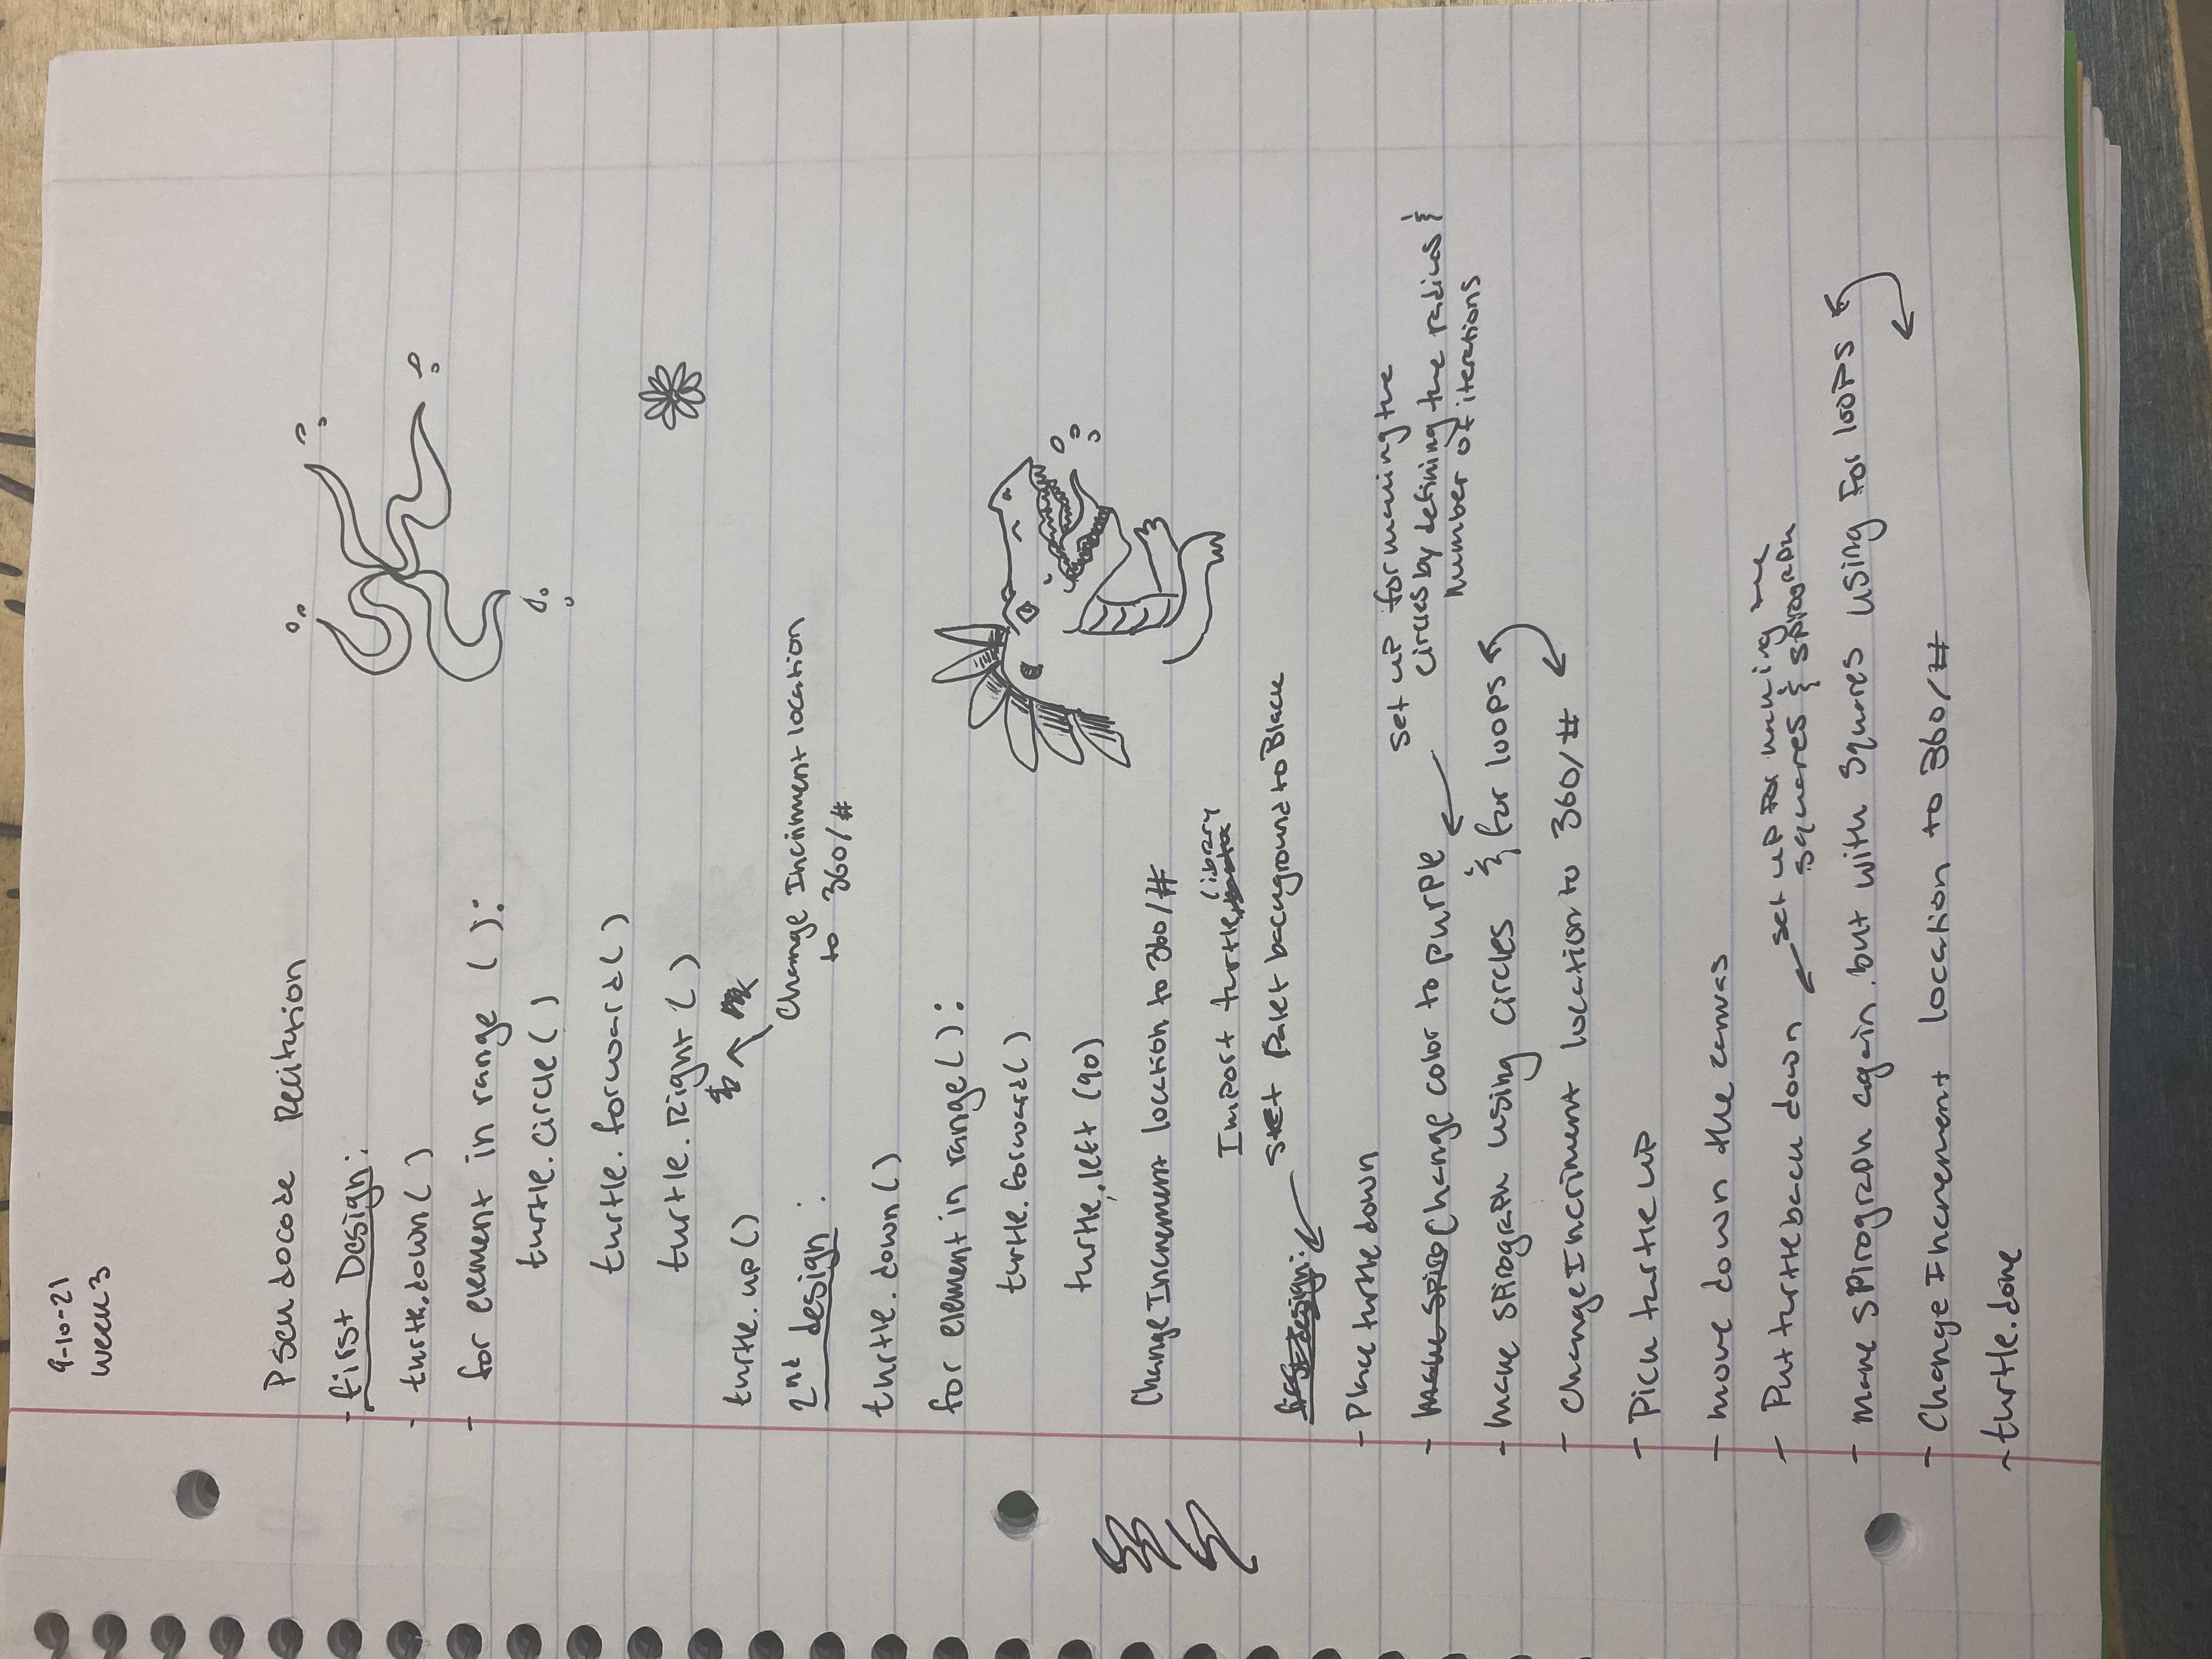 9-10-21
Week 3
Pseudocode Recitation
- First Design:
- turtle.down( )
- for element in range ( ):
turtle.circle( )
turtle.forward( )
turtle.Right ( )
turtle.up()
Change Incriment location
to 360/#
2nd design :
turtle.down( )
for element in range( ):
turtle.forward( )
turtle.left (90)
Change Increment location to 360/#
library
Import turtle
Set Palet background to Black
first design:
- Place turtle down
Set up for making the
circles by defining the radius &
Number of iterations
- make spiro Change color to purple
- make spirograph using circles & for loops
- Change Incriment location to 360/#
- Pick turtle up
- move down the canvas
- Put turtle back down
set up for making the
squares & spirograph
- make spirograph again. but with squares using For loops
- Change Increment location to 360/#
- turtle.done